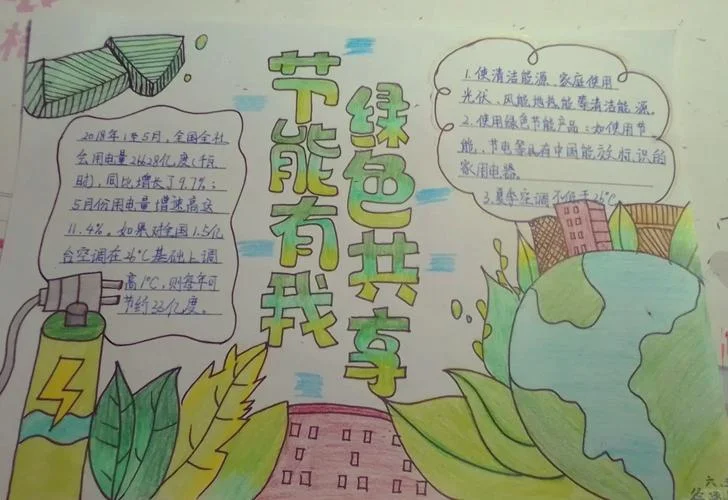 节能有我
绿色共享
2018年1至5月，全国全社
会用电量26628亿度（千瓦
时），同比增长了9.7%；
5月份用电量增速高达
11.4%。如果对全国1.5亿
台空调在26℃基础上调
高1℃，则每年可
节约33亿度。
1.使清洁能源、家庭使用
光伏、风能地热能等清洁能源。
2.使用绿色节能产品：如使用节
能、节电等具有中国能效标识的
家用电器。
3.夏季空调不低于26℃
六